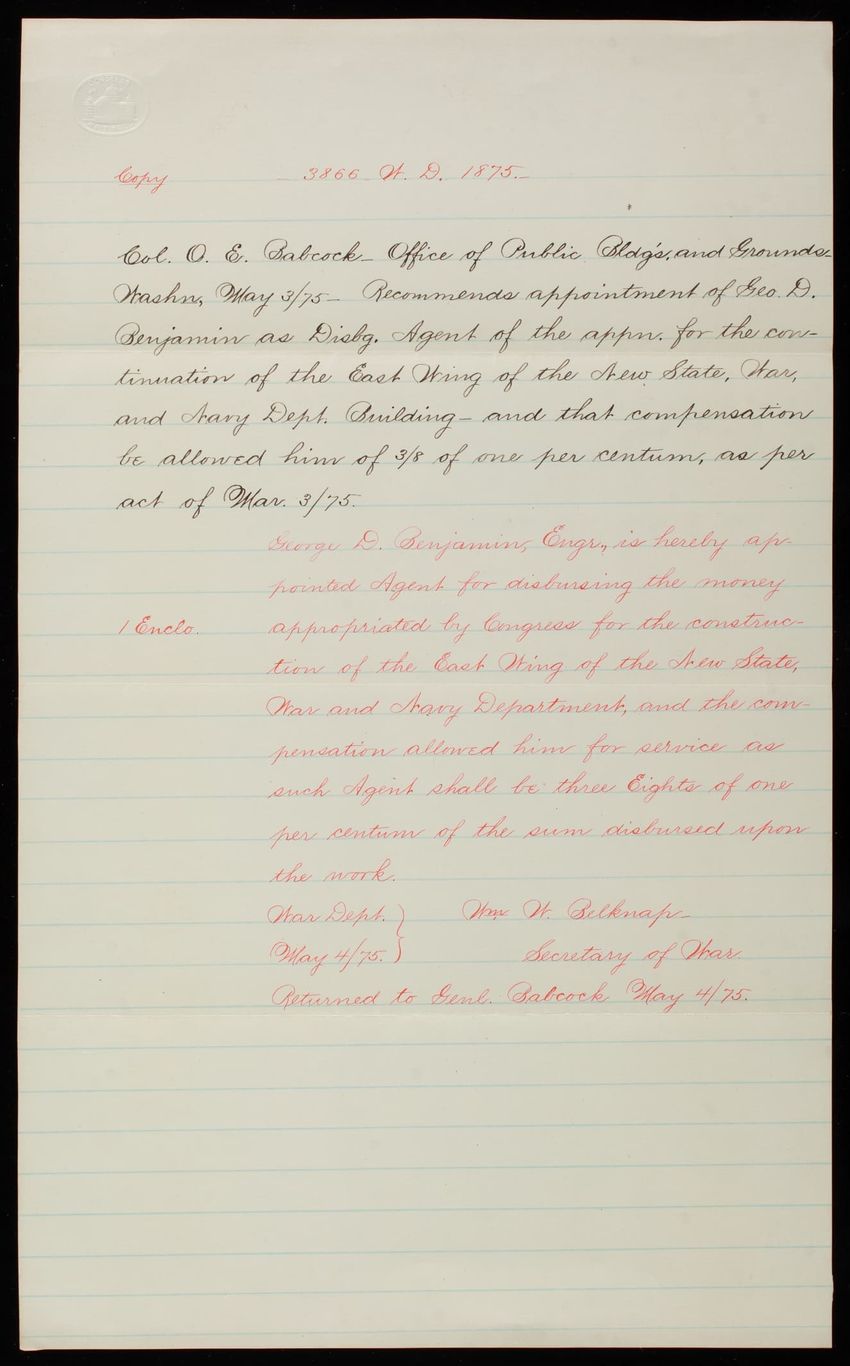 Copy 3866 W. D. 1875.
Col. O. E. Babcock - Office of Public Bldg's, and Grounds-
Washn, May 3/75 - Recommends appointment of Geo. D.
Benjamin as Disbg. Agent of the appn. for the con-
tinuation of the East Wing of the New State, War,
and Navy Dept. Building - and that compensation
be allowed him of 3/8 of one per centum, as per
act of Mar. 3/75.
George D. Benjamin, Engr., is hereby ap-
pointed Agent for disbursing the money
1 Enclo. appropriated by Congress for the construc-
tion of the East Wing of the New State,
War and Navy Department, and the com-
pensation allowed him for service as
such Agent shall be three Eights of one
per centum of the sum disbursed upon
the work.
War Dept. } Wm W. Belknap-
May 4/75. } Secretary of War.
Returned to Genl. Babcock May 4/75.